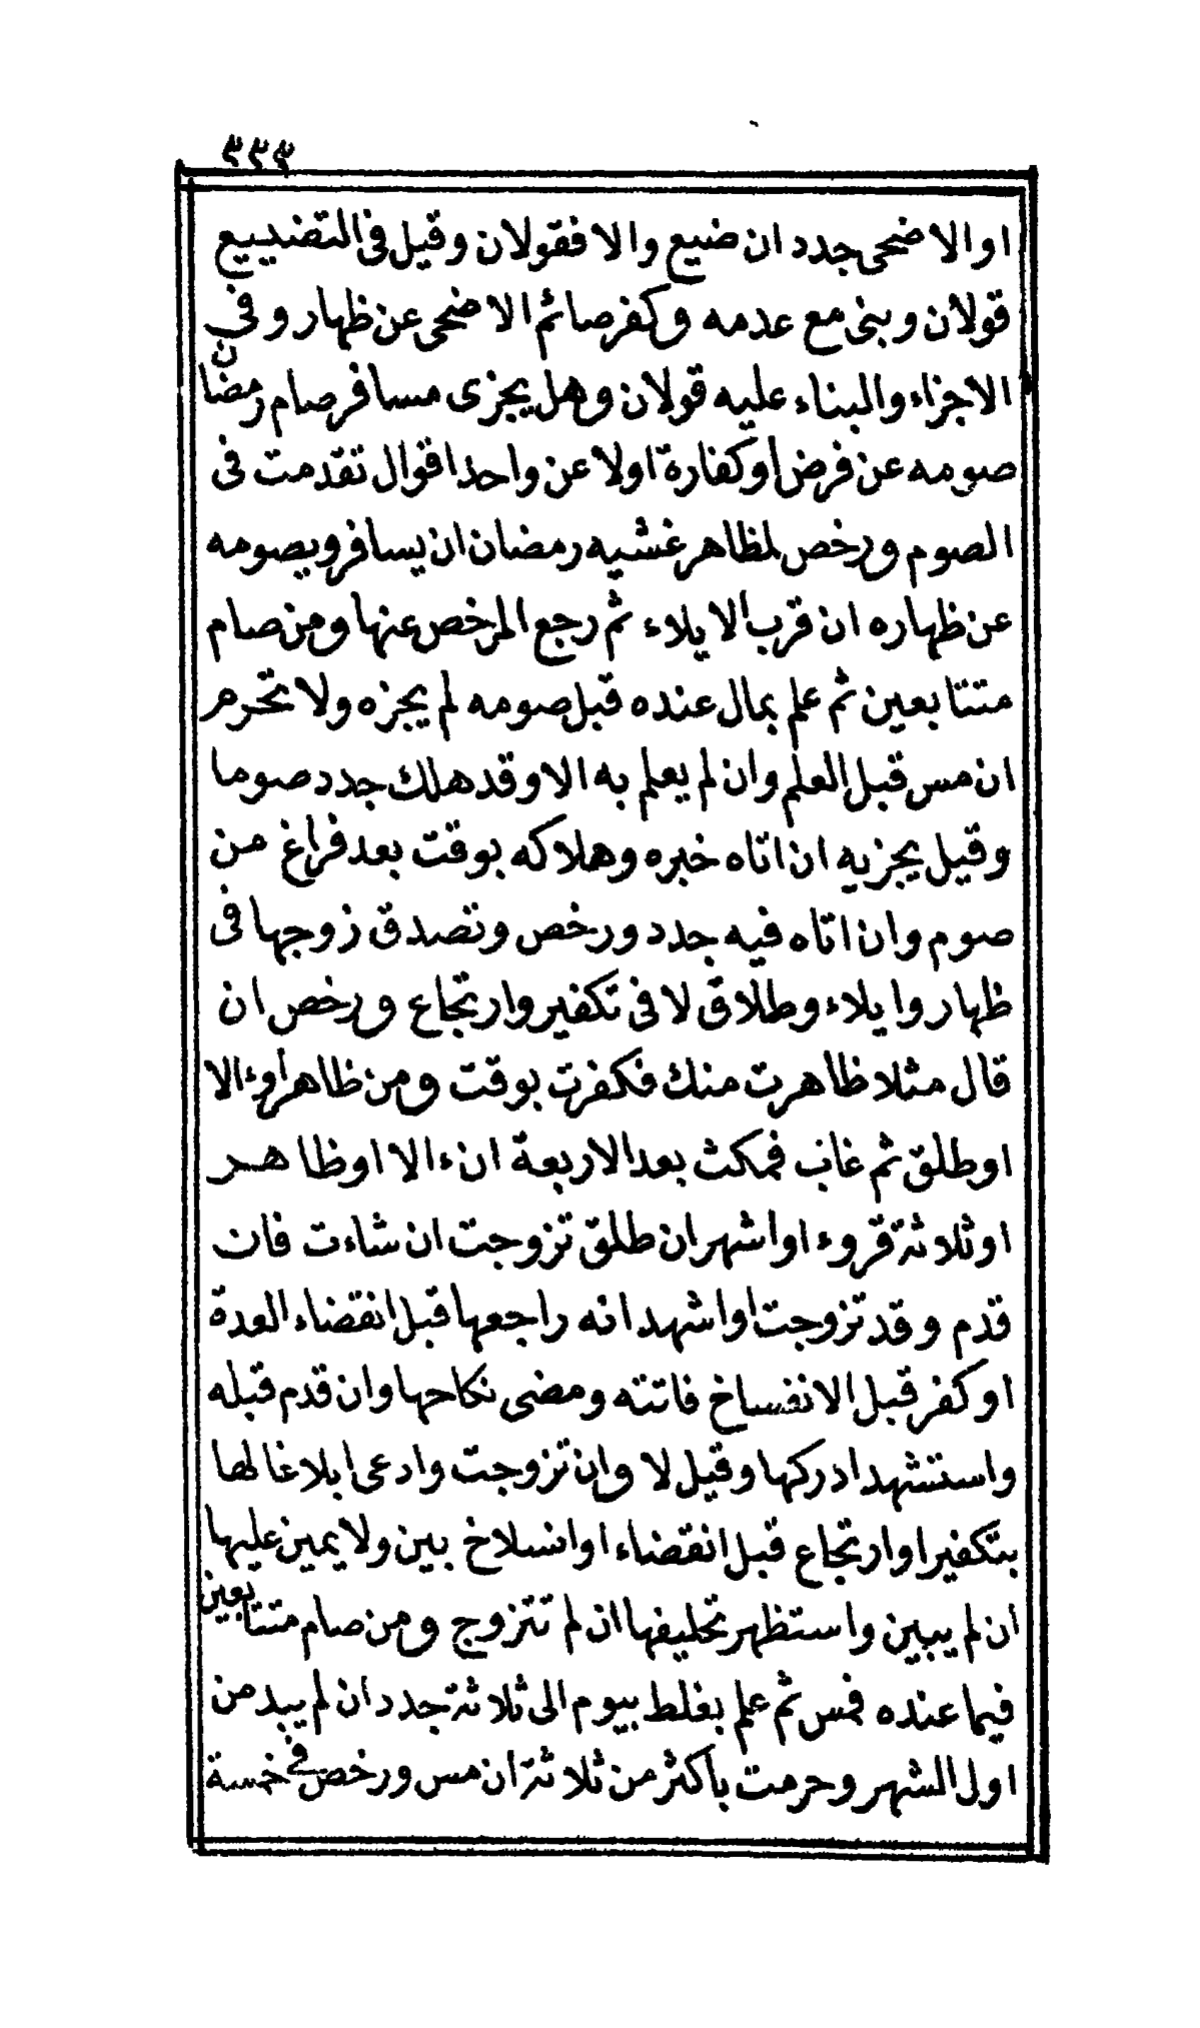 ٣٣٣
او الاضحى جدد ان ضيع والا فقولان وقيل فى التضييع
قولان وبنى مع عدمه وكفر صائم الاضحى عن ظهار وفي
الاجزاء والبناء عليه قولان وهل يجزى مسافر صام رمضان
صومه عن فرض او كفارة اولا عن واحد اقوال تقدمت فى
الصوم ورخص لمظاهر غشيه رمضان ان يسافر ويصومه
عن ظهاره ان قرب الايلاء ثم رجع المرخص عنها ومن صام
متتابعين ثم علم بمال عنده قبل صومه لم يجزه ولا تحرم
ان مس قبل العلم وان لم يعلم به الا وقد هلك جدد صوما
وقيل يجزيه ان اتاه خبره وهلاكه بوقت بعد فراغ من
صوم وان اتاه فيه جدد ورخص وتصدق زوجها فى
ظهار وايلاء وطلاق لا فى تكفير وارتجاع ورخص ان
قال مثلا ظاهرت منك فكفرت بوقت ومن ظاهر اوءالا
او طلق ثم غاب فمكث بعد الاربعة ان ءالا او ظاهر
او ثلاثة قروء او اشهر ان طلق تزوجت ان شاءت فان
قدم وقد تزوجت او اشهد انه راجعها قبل انقضاء العدة
او كفر قبل الانفساخ فاتته ومضى نكاحها وان قدم قبله
واستشهد ادركها وقيل لا وان تزوجت وادعى ابلاغا لها
بتكفير او ارتجاع قبل انقضاء او انسلاخ بين ولا يمين عليها
ان لم يبين واستظهر تحليفها ان لم تتزوج ومن صام متتابعين
فيما عنده فمس ثم علم بغلط بيوم الى ثلاثة جدد ان لم يبد من
اولى الشهر وحرمت باكثر من ثلاثة ان مس ورخص فى خمسة